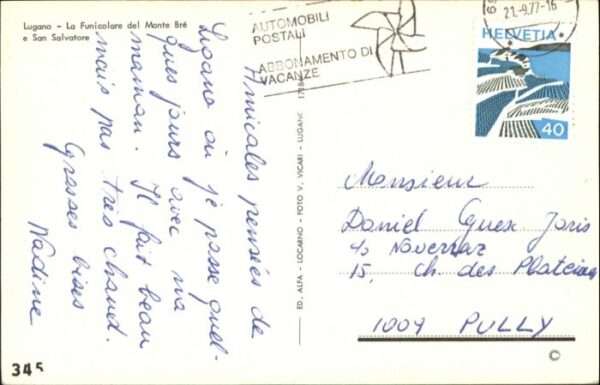 Lugano - La Funicolare del Monte Brè
e San Salvatore
AUTOMOBILI
POSTALI
ABBONAMENTO DI
VACANZE
21.-9.77-16
HELVETIA
40
Amicales pensées de
Lugano où je passe quel-
ques jours avec ma
maman. Il fait beau
mais pas très chaud.
Grosses bises
Nadine
ED. ALFA - LOCARNO - FOTO V. VICARI - LUGANO
Monsieur
Daniel Guex Joris
c/o Noverraz
15, Ch. des Plateires
1009 PULLY
345
©